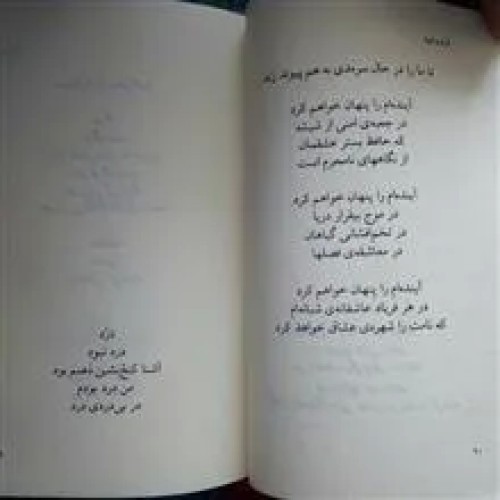 تا ما را در حال سرمدی به هم پیوند زند
آینده‌ام را پنهان خواهم کرد
در جعبه‌ی امنی از شیشه
که حافظ بستر عشقمان
از نگاههای نامحرم است
آینده‌ام را پنهان خواهم کرد
در موج بیقرار دریا
در تخم‌افشانی گیاهان
در معاشقه‌ی فصلها
آینده‌ام را پنهان خواهم کرد
در هر فریاد عاشقانه‌ی شبانه‌ام
که نامت را شهره‌ی عشاق خواهد کرد
درد
درد نبود
آشنا کنج‌نشین ذهنم بود
من درد بودم
در بی‌دردی درد